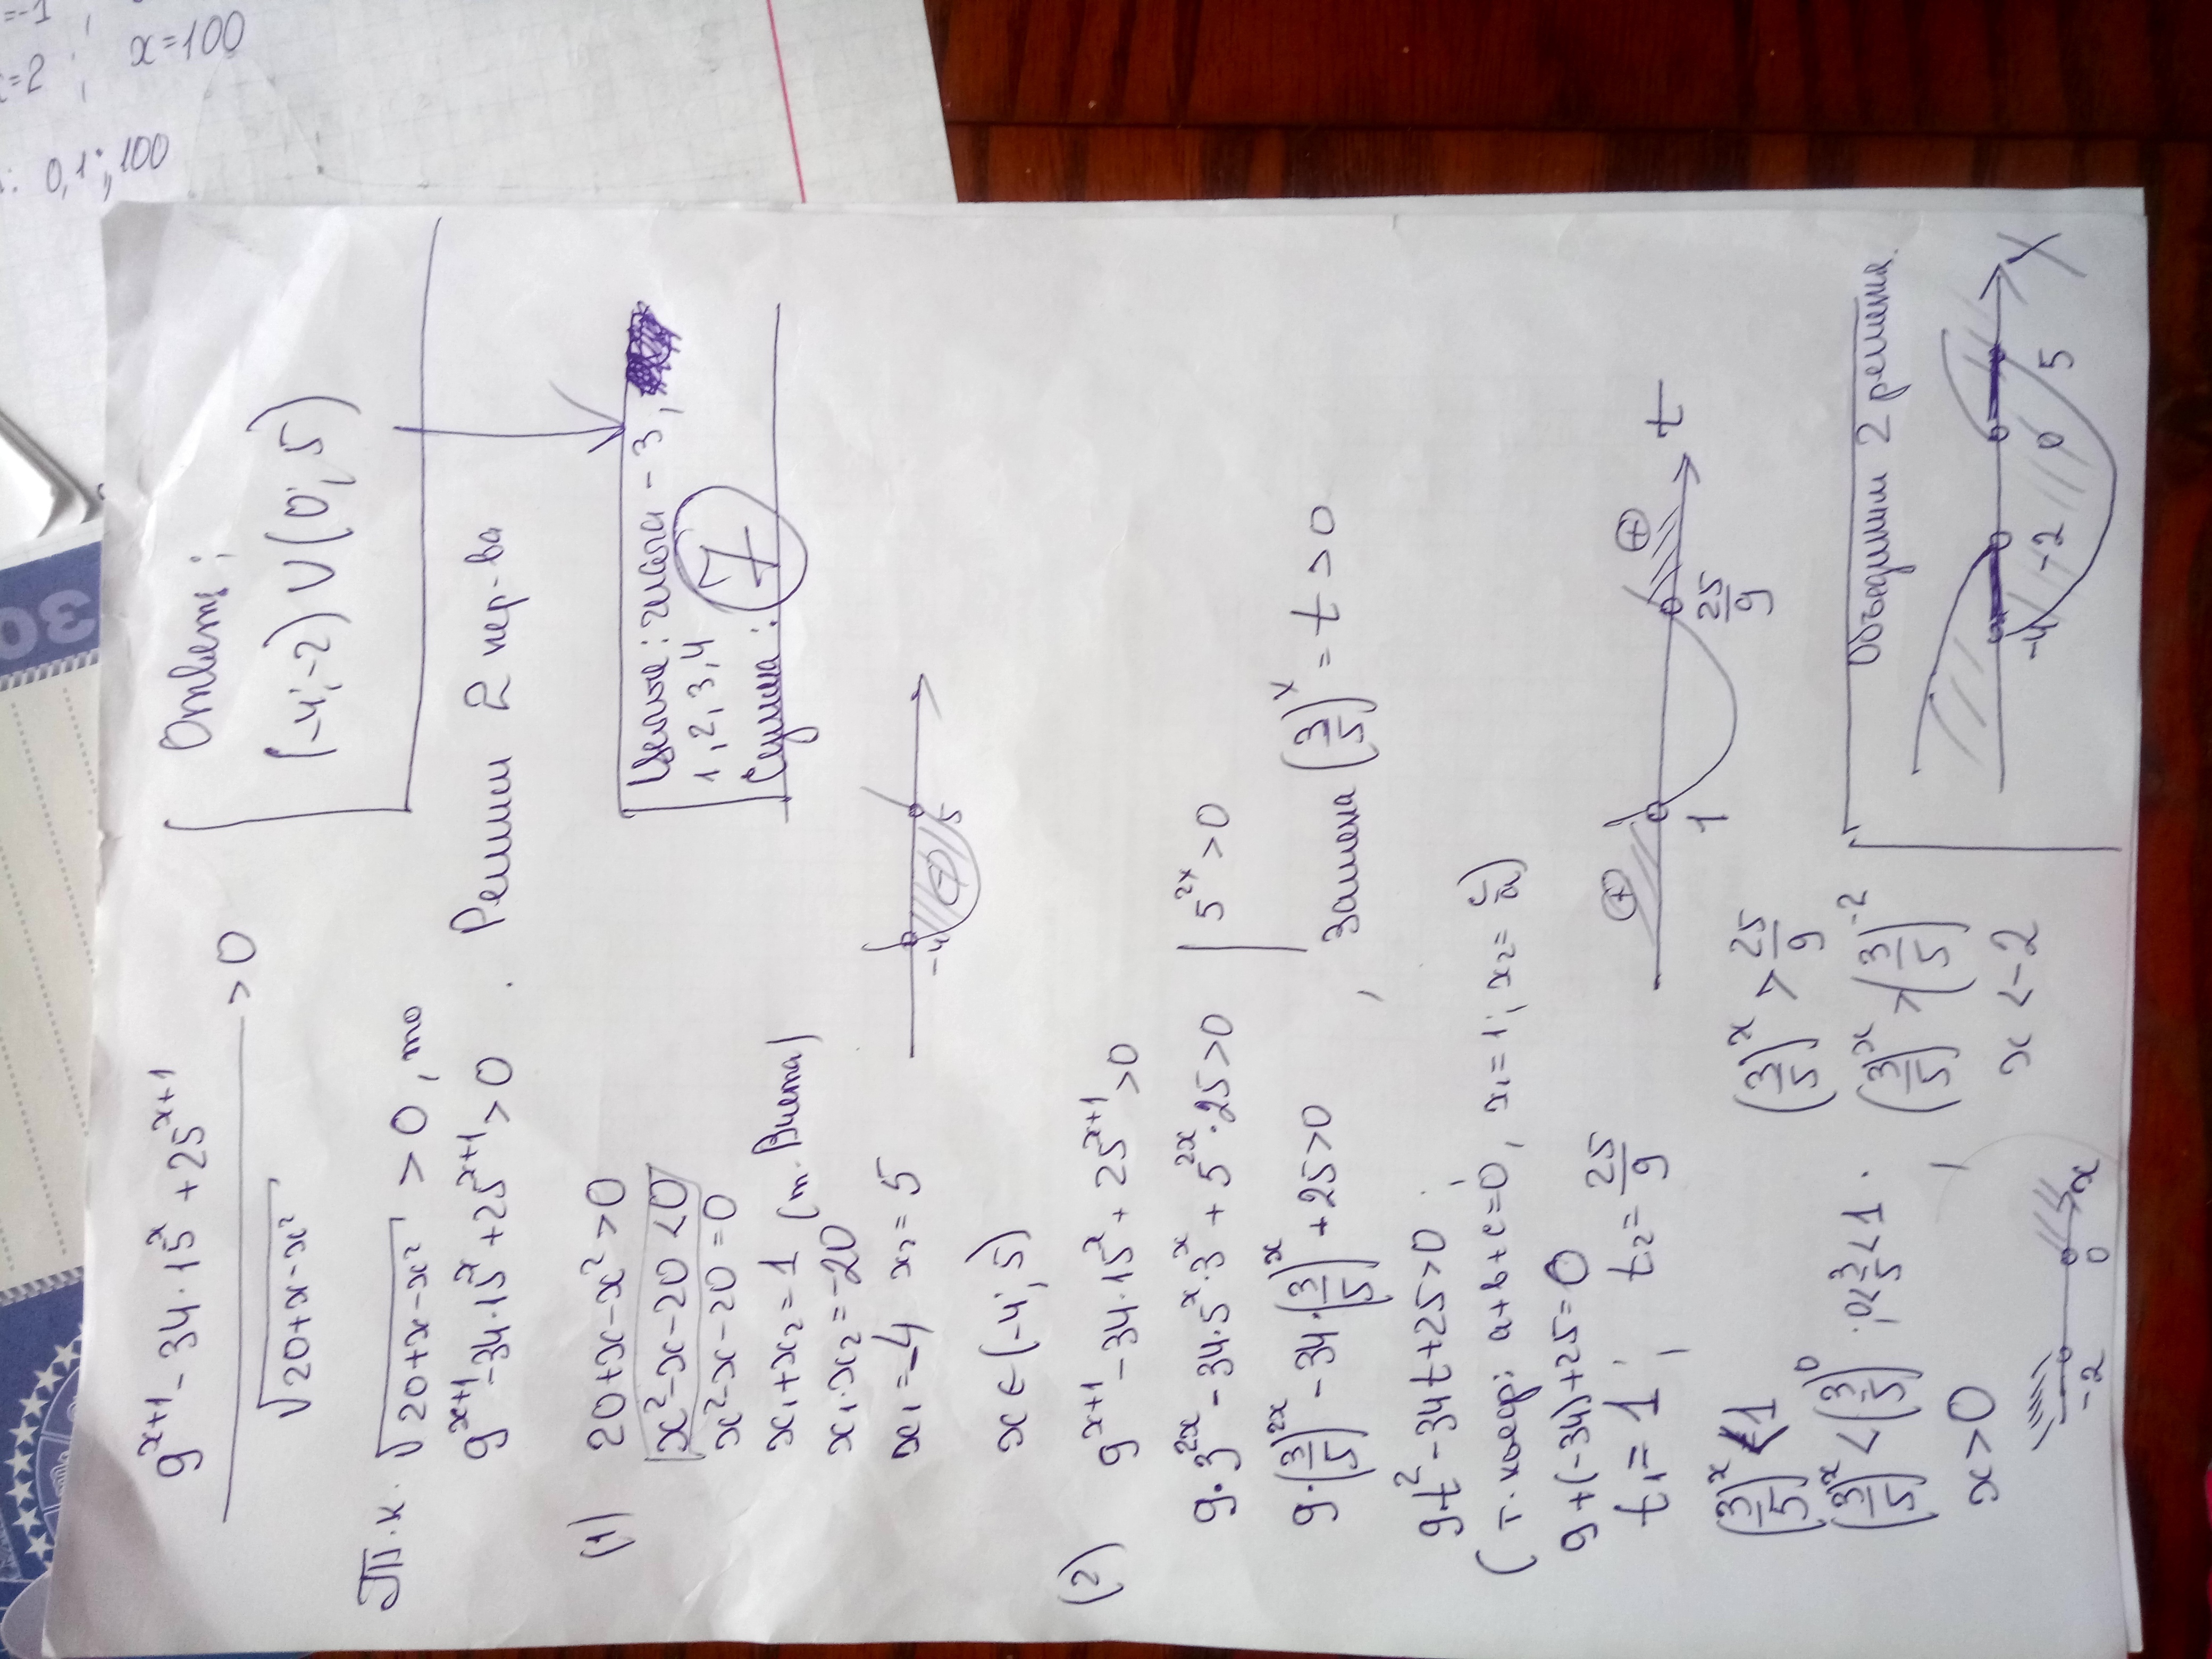 =-1 ;
=2 ; x=100
: 0,1; 100
30
9^{x+1} - 34·15^x + 25^{x+1}
> 0
√20+x-x²
Т.к. √20+x-x² > 0, то
9^{x+1} - 34·15^x + 25^{x+1} > 0 . Решим 2 нер-ва
(1) 20+x-x² > 0
x²-x-20 < 0
x²-x-20 = 0
x₁+x₂ = 1 (т. Виета)
x₁·x₂ = -20
x₁ = -4 x₂ = 5
-4 5
x ∈ (-4; 5)
(2) 9^{x+1} - 34·15^x + 25^{x+1} > 0
9·3^{2x} - 34·5^x·3^x + 5^{2x}·25 > 0 | 5^{2x} > 0
9·(3/5)^{2x} - 34·(3/5)^x + 25 > 0 , замена (3/5)^x = t > 0
9t² - 34t + 25 > 0
(т. коэф: a+b+c=0, x₁=1; x₂= c/a)
9+(-34)+25=0
t₁ = 1 ; t₂ = 25/9
+ + t
1 25/9
(3/5)^x < 1
(3/5)^x < (3/5)^0 . 0< 3/5 <1 .
x > 0
-2 0 x
(3/5)^x > 25/9
(3/5)^x > (3/5)^{-2}
x < -2
Объединим 2 решения.
-4 -2 0 5 X
Ответ:
(-4; -2) ∪ (0; 5)
Целые: числа -3,
1, 2, 3, 4
Сумма: 7